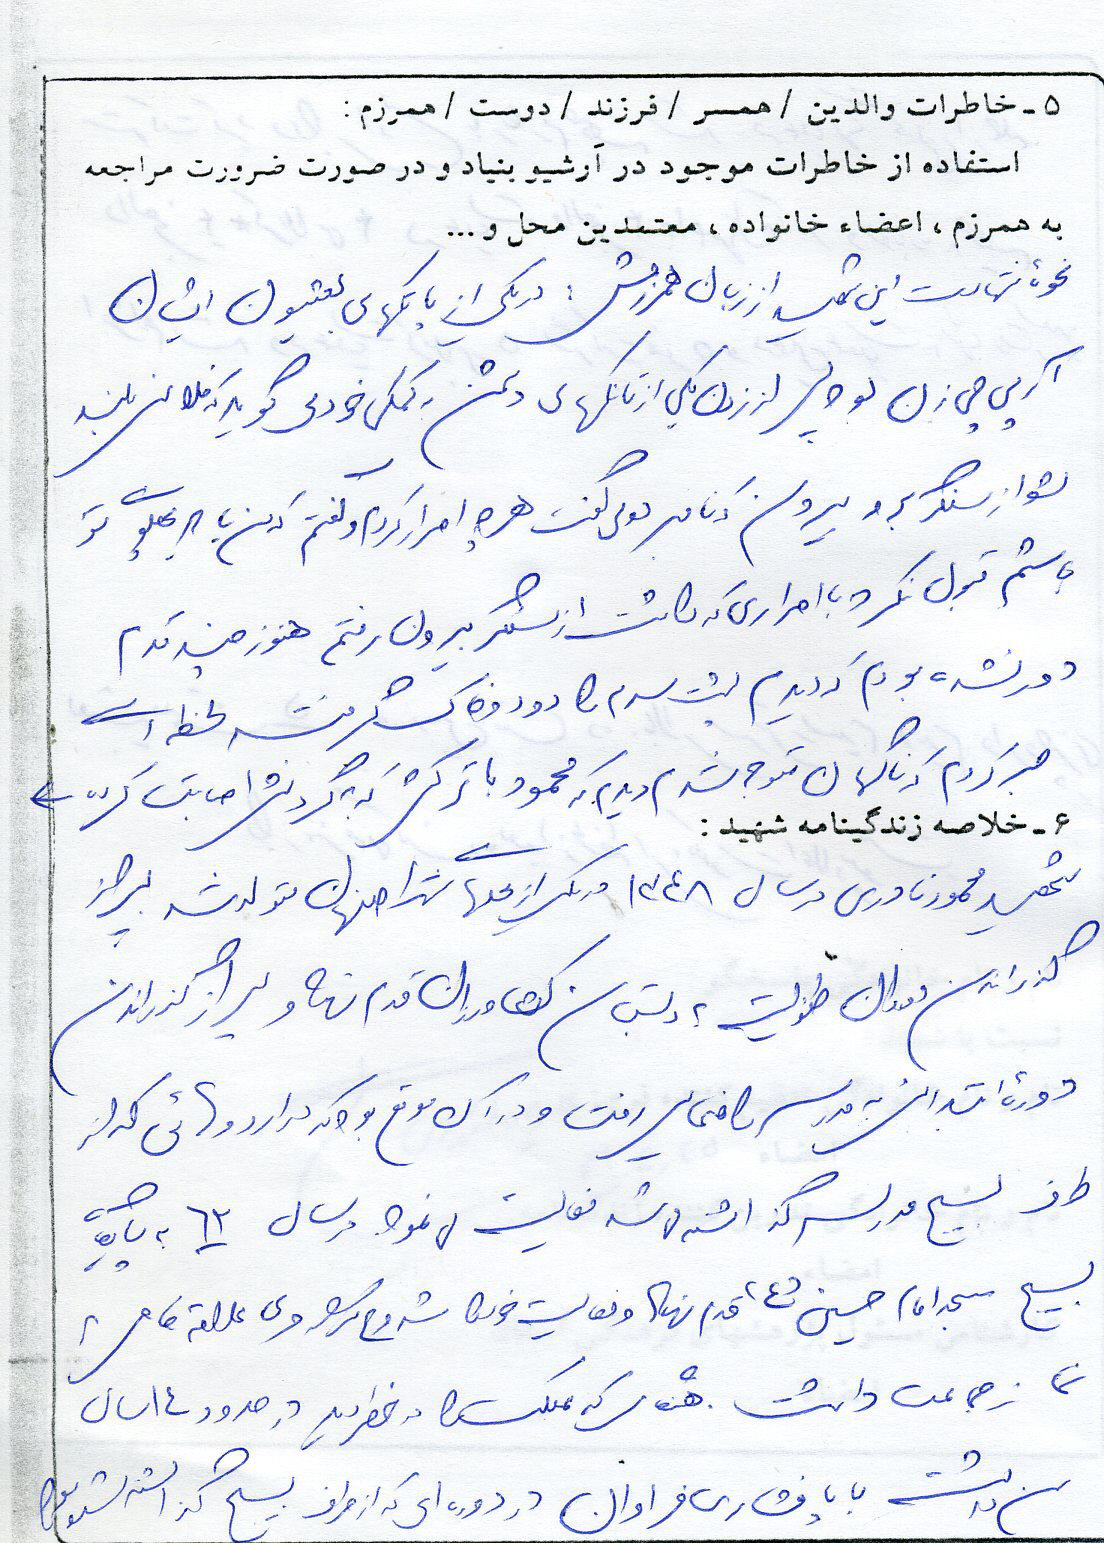 ۵ ـ خاطرات والدین / همسر / فرزند / دوست / همرزم :
استفاده از خاطرات موجود در آرشیو بنیاد و در صورت ضرورت مراجعه
به همرزم ، اعضاء خانواده ، معتمدین محل و ...
نحوهٔ شهادت این شهید از زبان همرزمش : در یکی از پاتکهای بعثیون ایشان
آرپی‌جی زن بود پس از زدن یکی از تانکهای دشمن به کمکی خود می گوید که فلانی بلند
شو از سنگر برو بیرون که نامبر می گفت هر چه اصرار کردم و گفتم که من باید پهلوی تو
باشم قبول نکرد با اصراری که داشت از سنگر بیرون رفتم هنوز چند قدم
دور نشده بودم که دیدم پشت سرم را دود و خاک گرفته لحظه ای
صبر کردم که ناگهان متوجه شدم دیدم که محمود با ترکش که به گردنش اصابت کرده
۶ ـ خلاصه زندگینامه شهید :
شهید محمود نادری در سال ۱۳۴۸ در یکی از محلهای شهر اصفهان متولد شد پس از
گذراندن دوران طفولیت به دبستان قدم نهاد و پس از گذراندن
دورهٔ ابتدائی به مدرسه راهنمایی رفت و در آن موقع بود که در اردوهائی که از
طرف بسیج مدرسه گذاشته می شد فعالیت می نمود در سال ۶۲ به پایگاه
بسیج مسجد امام حسین (ع) قدم نهاد و فعالیت خود را شروع کرد وی علاقه خاصی به
نماز جماعت داشت . هنگامی که مملکت را در خطر دید در حدود ۱۴ سال
سن داشت با پافشاری فراوان در دوره ای که از طرف بسیج گذاشته شده بود